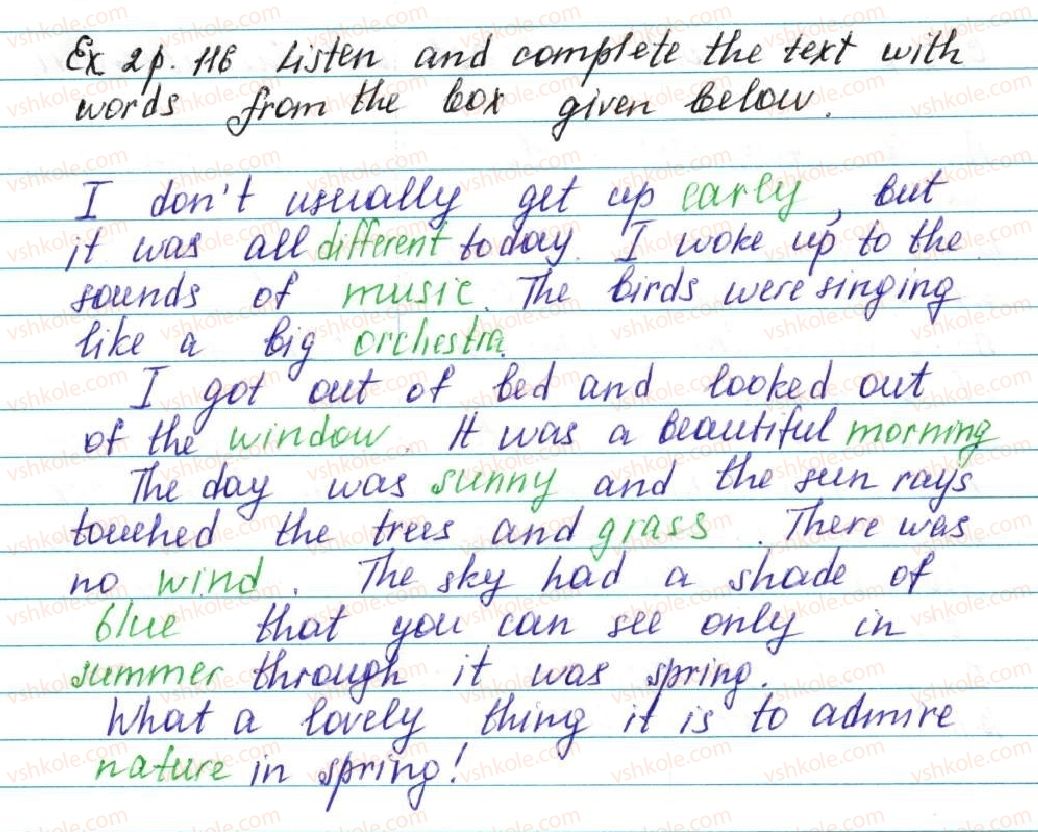 Ex 2 p. 116 Listen and complete the text with
words from the box given below.
I don't usually get up early, but
it was all different today. I woke up to the
sounds of music. The birds were singing
like a big orchestra.
I got out of bed and looked out
of the window. It was a beautiful morning
The day was sunny and the sun rays
touched the trees and grass. There was
no wind. The sky had a shade of
blue that you can see only in
summer through it was spring.
What a lovely thing it is to admire
nature in spring!